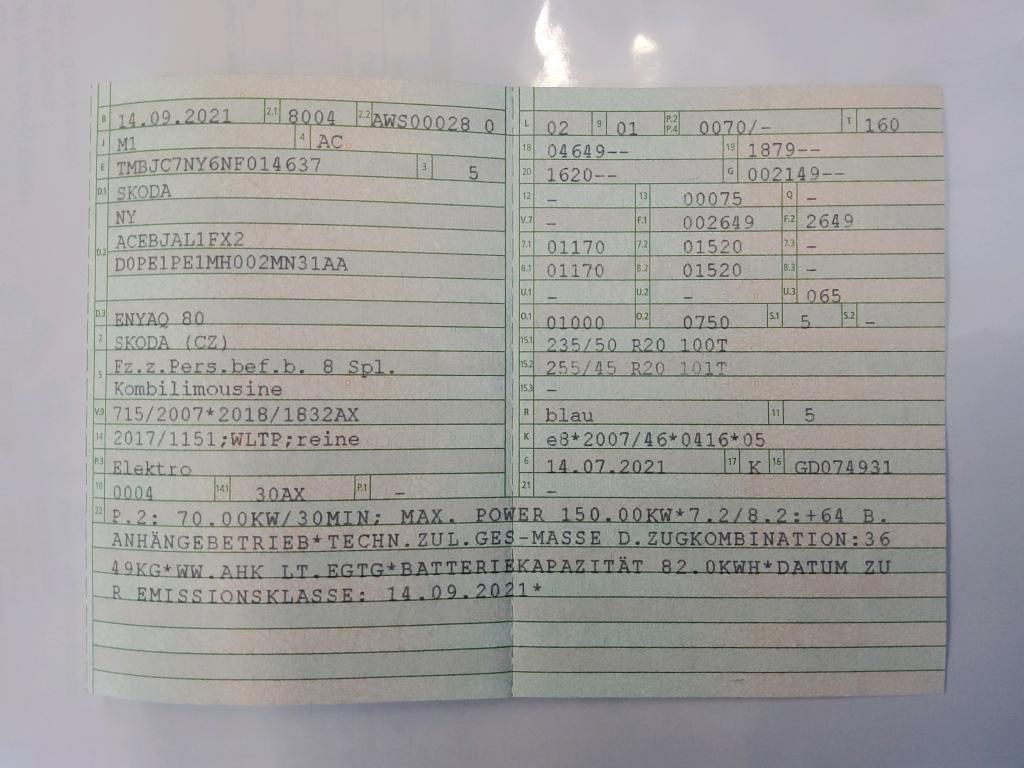 B 14.09.2021 2.1 8004 2.2 AWS00028 0
J M1 4 AC
E TMBJC7NY6NF014637 3 5
D.1 SKODA
NY
D.2 ACEBJAL1FX2
D0PE1PE1MH002MN31AA
D.3 ENYAQ 80
2 SKODA (CZ)
5 Fz.z.Pers.bef.b. 8 Spl.
Kombilimousine
V.9 715/2007*2018/1832AX
14 2017/1151;WLTP;reine
P.3 Elektro
10 0004 14.1 30AX P.1 –
L 02 9 01 P.2 P.4 0070/- T 160
18 04649-- 19 1879--
20 1620-- G 002149--
12 – 13 00075 Q –
V.7 – F.1 002649 F.2 2649
7.1 01170 7.2 01520 7.3 –
8.1 01170 8.2 01520 8.3 –
U.1 – U.2 – U.3 065
O.1 01000 O.2 0750 S.1 5 S.2 –
15.1 235/50 R20 100T
15.2 255/45 R20 101T
15.3 –
R blau 11 5
K e8*2007/46*0416*05
6 14.07.2021 17 K 16 GD074931
21 –
22 P.2: 70.00KW/30MIN; MAX. POWER 150.00KW*7.2/8.2:+64 B.
ANHÄNGEBETRIEB*TECHN.ZUL.GES-MASSE D.ZUGKOMBINATION:36
49KG*WW.AHK LT.EGTG*BATTERIEKAPAZITÄT 82.0KWH*DATUM ZU
R EMISSIONSKLASSE: 14.09.2021*